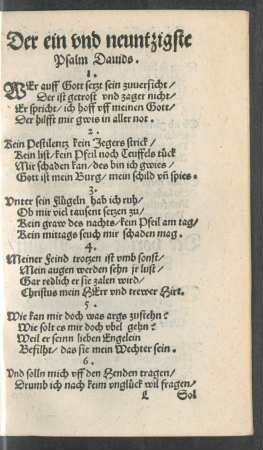 Der ein vnd neuntzigste
Psalm Dauids.
1.
WEr auff Gott setzt sein zuuersicht/
Der ist getrost vnd zaget nicht/
Er spricht/ ich hoff vff meinen Gott/
Der hilfft mir gwis in aller not.
2.
Kein Pestilentz kein Jegers strick/
Kein list/ kein Pfeil noch Teuffels tück
Mir schaden kan/ des bin ich gwies/
Gott ist mein Burg/ mein schild vñ spies.
3.
Vnter sein flügeln hab ich ruh/
Ob mir viel tausent setzen zu/
Kein graw des nachts/ kein Pfeil am tag/
Kein mittags seuch mir schaden mag.
4.
Meiner Feind trotzen ist vmb sonst/
Mein augen werden sehn jr lust/
Gar redlich er sie zalen wird/
Christus mein HErr vnd trewer Hirt.
5.
Wie kan mir doch was args zustehn?
Wie solt es mir doch vbel gehn?
Weil er seinn lieben Engelein
Befilht/ das sie mein Wechter sein.
6.
Vnd solln mich vff den Henden tragen/
Drumb ich nach keim vnglück wil fragen/
L Sol